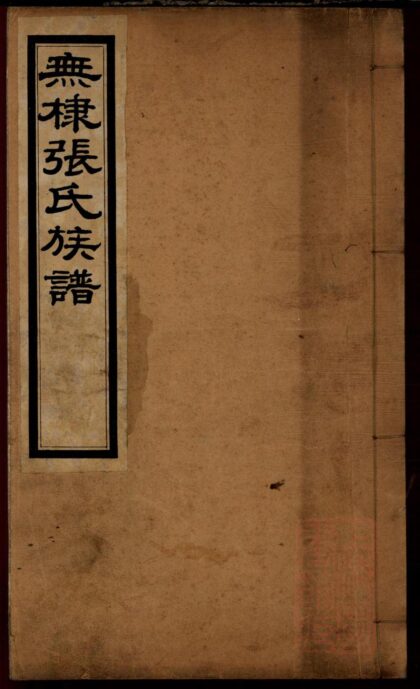 無棣張氏族譜